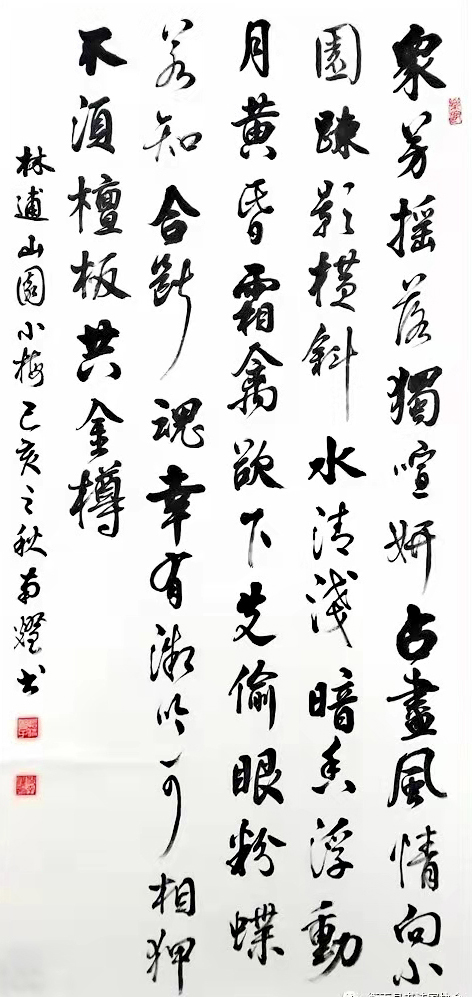 眾芳摇落獨喧妍占盡風情向小
園疎影橫斜水清淺暗香浮動
月黄昏霜禽欲下先偷眼粉蝶
若知合斷魂幸有微吟可相狎
不須檀板共金樽
林逋山園小梅己亥之秋南燈书